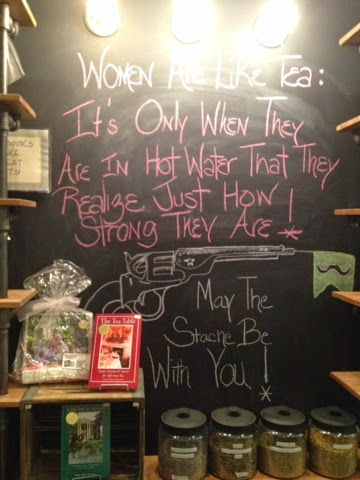 Women Are Like Tea:
It's Only When They
Are In Hot Water That They
Realize Just How
Strong They Are!
May The
Stache Be
With You!
The Tea Table